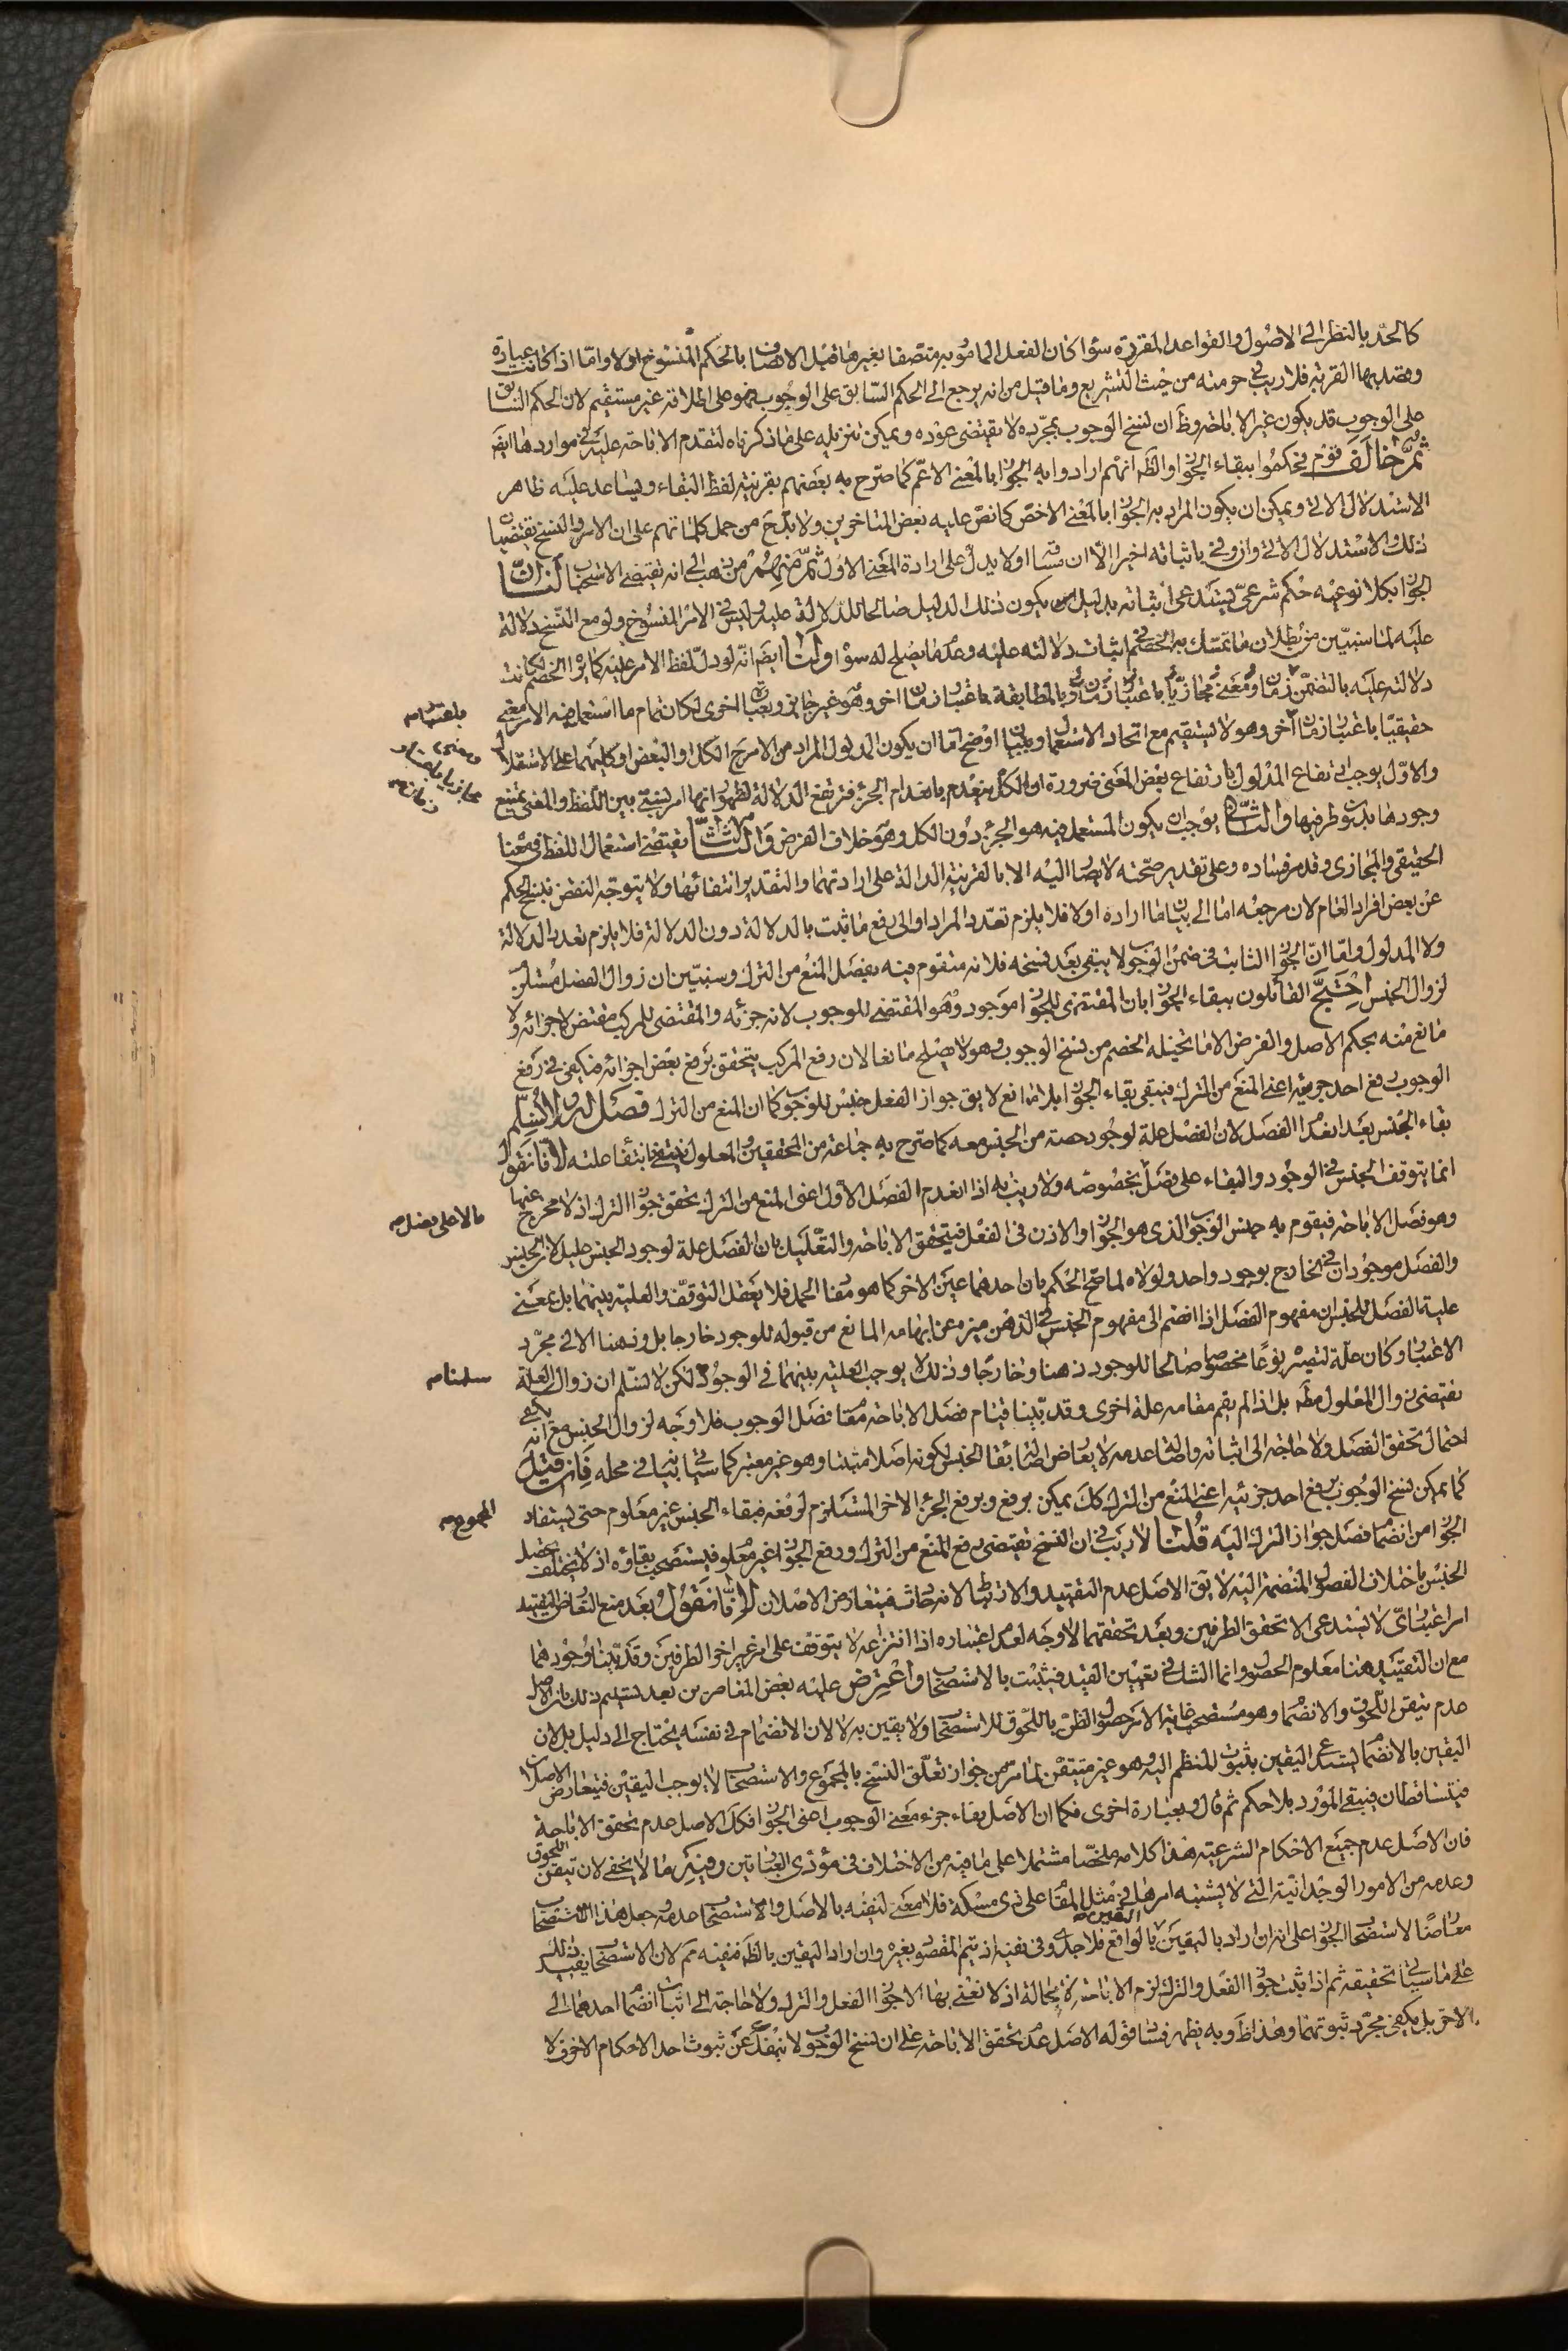 كالحد بالنظر الى الاصول والقواعد المقررة سواء كان الفعل المامور به متصفا بغيرها قبل الاتصاف بالحكم المنسوخ اولا واما اذا كانت عبادة
ومقتديها القربة فلا ريب في حرمته من حيث التشريع وما قيل من انه يرجع الى الحكم السابق على الوجوب فهو على اطلاقه غير مستقيم لان الحكم السابق
على الوجوب قد يكون غير الاباحة وظ ان نسخ الوجوب بمجرده لا يقتضى عوده ويمكن تنزيله على ما ذكرناه لتقدم الاباحة عليه في مواردها ايضا
ثم خالف قوم فحكموا ببقاء الجواز والظ انهم ارادوا به الجواز بالمعنى الاعم كما صرح به بعضهم بقرينة لفظ البقاء ويساعد عليه ظاهر
الاستدلال الاتى ويمكن ان يكون المراد به الجواز بالمعنى الاخص كما نص عليه بعض المتاخرين ولا بد ح من حمل كلماتهم على ان الامر والنسخ يقتضيان
ذلك والاستدلال الاتى وان وفى باثباته اخيرا الا ان مساقه اولا يدل على ارادة المعنى الاول ثم منهم من ذهب الى انه يقتضى الاستحباب لنا ان
الجواز بكلا نوعيه حكم شرعى يستدعى اثباته بدليل يكون ذلك الدليل صالحا للدلالة عليه وليس في الامر المنسوخ ولو مع النسخ دلالة
عليه لما سنبين من بطلان ما تمسك به الخصم في اثبات دلالته عليه وعدم ما يصلح له سواه ولنا ايضا انه لو دل لفظ الامر عليه كما يراه الخصم لكانت
دلالته عليه بالتضمن زمانا ومعنى مجازيا باعتبار زمان وبالمطابقة باعتبار زمان اخر وهو غير جائز وبعبارة اخرى لكان تمام ما استعمل فيه الامر معنى
حقيقيا باعتبار زمان اخر وهو لا يستقيم مع اتحاد الاستعمال وببيان اوضح اما ان يكون المدلول المراد من الامر ح الكل او البعض او كليهما على الاستقلال
والاول يوجب ارتفاع المدلول بارتفاع بعض المعنى ضرورة ان الكل ينعدم بانعدام الجزء فترتفع الدلالة لظهور انها امر نسبى بين اللفظ والمعنى يمتنع
وجودها بدون طرفيها والثانى يوجب ان يكون المستعمل فيه هو الجزء دون الكل وهو خلاف الفرض والثالث يقتضى استعمال اللفظ في معناه
الحقيقى والمجازى وقد مر فساده وعلى تقدير صحته لا يصار اليه الا بالقرينة الدالة على ارادتهما والتقدير انتفائها ولا يتوجه النقض بنسخ الحكم
عن بعض افراد العام لان مرجعه اما الى بيان ما اراده اولا فلا يلزم تعدد المراد او الى رفع ما ثبت بالدلالة دون الدلالة فلا يلزم تعدد الدلالة
ولا المدلول واما ان الجواز الثابت في ضمن الوجوب لا يبقى بعد نسخه فلانه متقوم فيه بفصل المنع من الترك وسنبين ان زوال الفصل مستلزم
لزوال الجنس احتج القائلون ببقاء الجواز بان المقتضى للجواز موجود وهو المقتضى للوجوب لانه جزئه والمقتضى للمركب مقتض لاجزائه ولا
مانع منه بحكم الاصل والفرض الا ما تخيله الخصم من نسخ الوجوب وهو لا يصلح مانعا لان رفع المركب يتحقق برفع بعض اجزائه فيكفى في رفع
الوجوب رفع احد جزئيه اعنى المنع من الترك فيبقى بقاء الجواز بلا مانع لا يق جواز الفعل جنس للوجوب كما ان المنع من الترك فصل له ولا نسلم
بقاء الجنس بعد انعدام الفصل لان الفصل علة لوجود حصة من الجنس معه كما صرح به جماعة من المحققين والمعلول ينتفى بانتفاء علته لانا نقول
انما يتوقف الجنس في الوجود والبقاء على فصل بخصوصه ولا ريب انه اذا انعدم الفصل الاول اعنى المنع من الترك تحقق جواز الترك اذ لا مخرج عنهما
وهو فصل الاباحة فيقوم به جنس الوجوب الذى هو الجواز والاذن في الفعل فيتحقق الاباحة والتعليل بان الفصل علة لوجود الجنس عليل لان الجنس
والفصل موجودان في الخارج بوجود واحد ولولاه لما صح الحكم بان احدهما عين الاخر كما هو مفاد الحمل فلا يعقل التوقف والعلية بينهما بل معنى
علية الفصل للجنس ان مفهوم الفصل اذا انضم الى مفهوم الجنس في الذهن ميزه عن ابهامه المانع من قبوله للوجود خارجا بل وذهنا الا في مجرد
الاعتبار وكان علة لتصيره نوعا مخصوصا صالحا للوجود ذهنا وخارجا وذلك لا يوجب العلية بينهما في الوجود لكن لا نسلم ان زوال العلة
يقتضى زوال المعلول مطه بل اذا لم يقم مقامه علة اخرى وقد بينا قيام فصل الاباحة مقام فصل الوجوب فلا وجه لزوال الجنس مع انه يكفى
احتمال تحقق الفصل ولا حاجة الى اثباته واصالة عدمه لا يعارض اصالة بقاء الجنس لكونه اصلا مثبتا وهو غير معتبر كما سياتى بيانه في محله فان قيل
كما يمكن نسخ الوجوب برفع احد جزئيه اعنى المنع من الترك كك يمكن برفع وبرفع الجزء الاخر المستلزم لرفعه فبقاء الجنس غير معلوم حتى يستفاد
الجواز من انضمام فصل جواز الترك اليه قلنا لا ريب في ان النسخ يقتضى رفع المنع من الترك ورفع الجواز غير معلوم فيستصحب بقاؤه اذ لا يختلف فصل
الجنس باختلاف الفصول المنضمة اليه لا يق الاصل عدم التقييد والارتباط لانه حادث فيتعارض الاصلان لانا نقول بعد منع التعارض التقييد
امر اعتبارى لا يستدعى الا تحقق الطرفين وبعد تحققهما لا وجه لعدم اعتباره اذا انتزاعه لا يتوقف على امر غير اخر الطرفين وقد بينا وجودهما
مع ان التقييد هنا معلوم الحصول وانما الشك في تعيين القيد فيثبت بالاستصحاب واعترض عليه بعض المعاصرين بعد تسليم ذلك بان الاصل
عدم تيقن اللحوق والانضمام وهو مستصحب غاية الامر حصول الظن باللحوق للاستصحاب ولا يقين به لا لان الانضمام في نفسه يحتاج الى دليل بل لان
اليقين بالانضمام يستدعى اليقين بثبوت المنظم اليه وهو غير متيقن لما مر من جواز تعلق النسخ بالمجموع والاستصحاب لا يوجب اليقين فيتعارض الاصلان
فيتساقطان فيبقى المورد بلا حكم ثم قال وبعبارة اخرى فكما ان الاصل بقاء جزء معنى الوجوب اعنى الجواز فكك الاصل عدم تحقق الاباحة
فان الاصل عدم جميع الاحكام الشرعية هذا كلامه ملخصا مشتملا على ما فيه من الاختلاف في مؤدى العبارتين وفيه ما لا يخفى لان تيقن اللحوق
وعدمه من الامور الوجدانية التى لا يشتبه امرها في مثل المقام على ذى مسكة فلا معنى لنفيه بالاصل والاستصحاب عدمه وجعل هذا الاستصحاب
معارضا لاستصحاب الجواز على انه ان اراد باليقين اليقين بالواقع فلا جدى وفى نفيه اذ يتم المقصود بغيره وان اراد اليقين بالظ فنفيه مم لان الاستصحاب يفيد ذلك
على ما سياتى تحقيقه ثم اذا ثبت جواز الفعل والترك لزم الاباحة لا محالة اذ لا نعنى بها الا جواز الفعل والترك ولا حاجة الى اثبات انضمام احدهما الى
الاخر بل يكفى مجرد ثبوتهما وهذا ظ وبه يظهر فساد قوله الاصل عدم تحقق الاباحة على ان نسخ الوجوب لا ينفك عن ثبوت احد الاحكام الاخر فلا